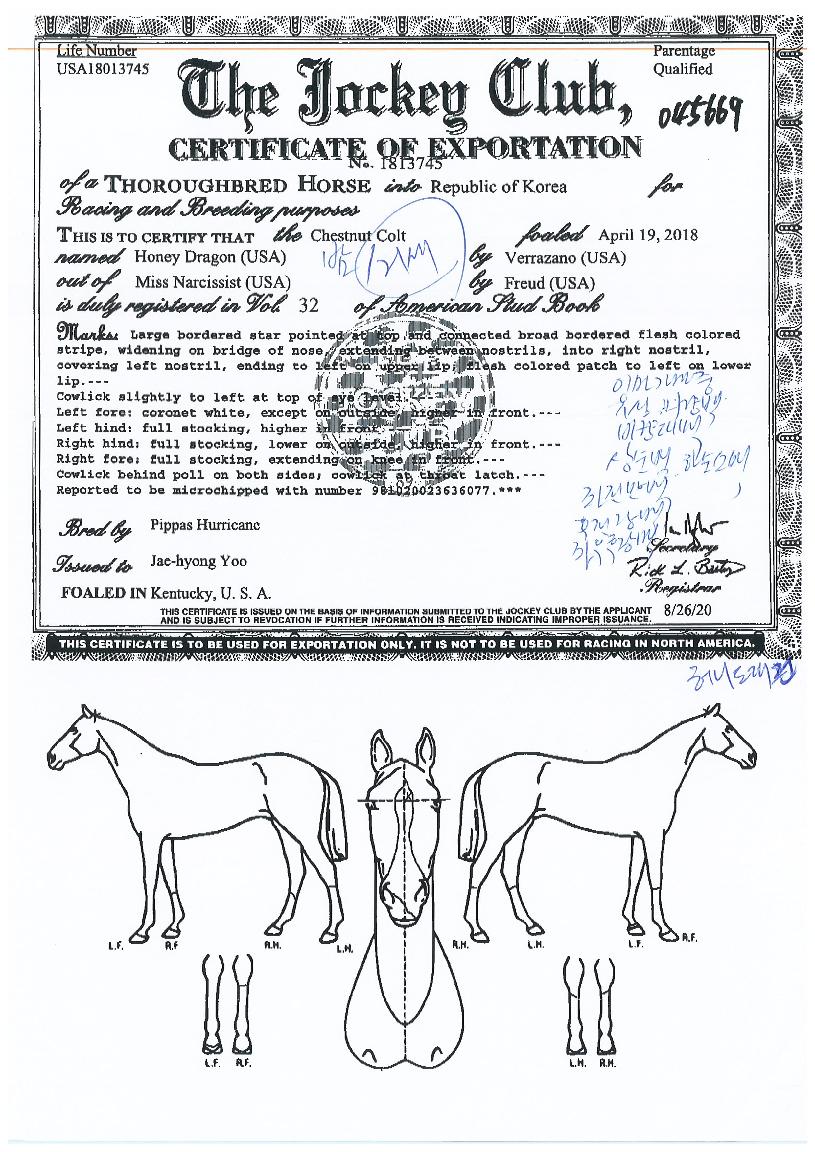 Life Number
USA18013745
Parentage
Qualified
The Jockey Club,
045669
CERTIFICATE OF EXPORTATION
No. 1813745
of a THOROUGHBRED HORSE into Republic of Korea for
Racing and Breeding purposes
THIS IS TO CERTIFY THAT the Chestnut Colt foaled April 19, 2018
named Honey Dragon (USA) by Verrazano (USA)
out of Miss Narcissist (USA) by Freud (USA)
is duly registered in Vol. 32 of American Stud Book
Marks: Large bordered star pointed at top and connected broad bordered flesh colored
stripe, widening on bridge of nose, extending between nostrils, into right nostril,
covering left nostril, ending to left on upper lip; flesh colored patch to left on lower
lip.---
Cowlick slightly to left at top of eye level.---
Left fore: coronet white, except on outside, higher in front.---
Left hind: full stocking, higher in front.---
Right hind: full stocking, lower on outside, higher in front.---
Right fore: full stocking, extending on knee in front.---
Cowlick behind poll on both sides; cowlick at throat latch.---
Reported to be microchipped with number 981020023636077.***
Bred by Pippas Hurricane
Issued to Jae-hyong Yoo
Secretary
Rick L. Bailey
Registrar
FOALED IN Kentucky, U. S. A.
THIS CERTIFICATE IS ISSUED ON THE BASIS OF INFORMATION SUBMITTED TO THE JOCKEY CLUB BY THE APPLICANT
AND IS SUBJECT TO REVOCATION IF FURTHER INFORMATION IS RECEIVED INDICATING IMPROPER ISSUANCE.
8/26/20
THIS CERTIFICATE IS TO BE USED FOR EXPORTATION ONLY. IT IS NOT TO BE USED FOR RACING IN NORTH AMERICA.
허니드래곤
L.F. R.F. R.H. L.H. R.H. L.H. L.F. R.F.
L.F. R.F. L.H. R.H.